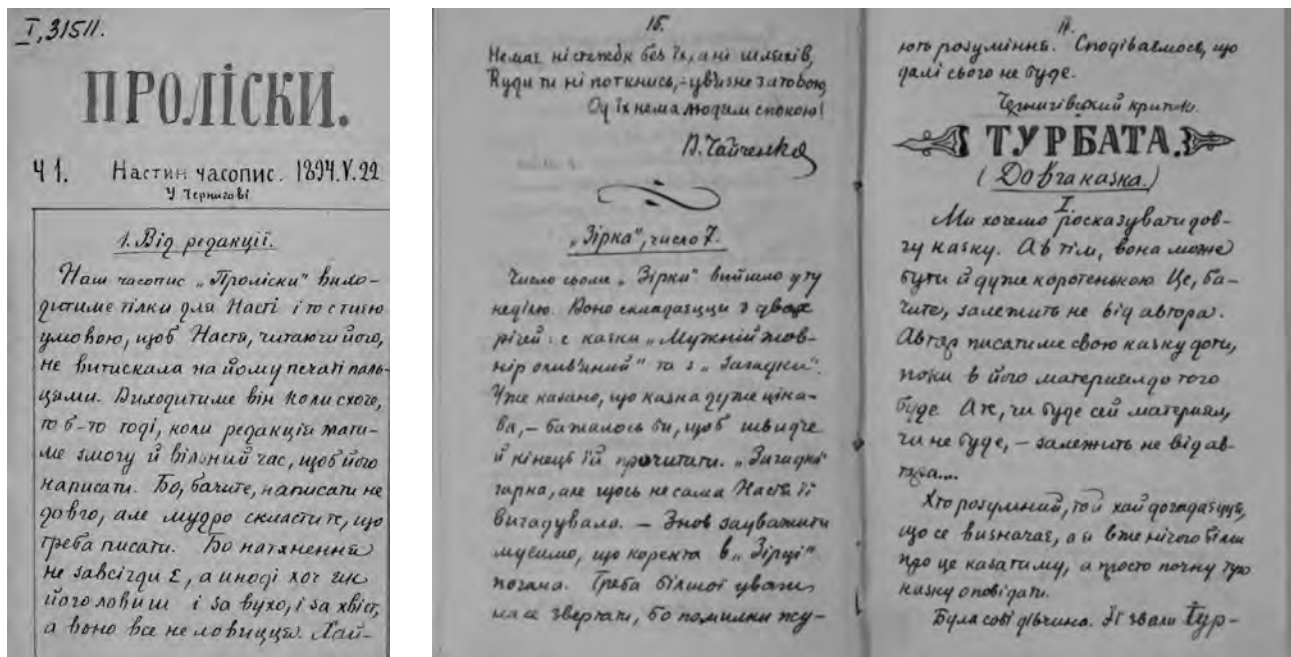 I, 31511.
ПРОЛІСКИ.
Ч 1. Настин часопис. 1894.V.22
У Чернигові
1. Від редакції.
Наш часопис „Проліски" вихо-
дитиме тілки для Насті і то с тиєю
умовою, щоб Настя, читаючи його,
не витискала на йому печаті паль-
цями. Виходитиме він коли схоче,
то б-то тоді, коли редакція мати-
ме змогу й вільний час, щоб його
написати. Бо, бачите, написати не
довго, але мудро скласти те, що
треба писати. Бо натхнення
не завсігди є, а иноді хоч як
його ловиш і за вухо, і за хвіст,
а воно все не ловицця. Хай-
15.
Немає ні стежок без їх, ані шляхів,
Куди ти ні поткнись, – увизне за тобою,
Од їх нема людям спокою!
В. Чайченко
„Зірка", число 7.
Число сьоме „Зірки" вийшло у ту
неділю. Воно складаєцця з двох
річей: с казки „Мужній жов-
нір олив'яний" та з „Загадки".
Уже казано, що казка дуже ціка-
ва, – бажалось би, щоб швидче
й кінець їй прочитати. „Загадка"
гарна, але щось не сама Настя її
вигадувала. – Знов зауважити
мусимо, що коректа в „Зірці"
погана. Треба більшої уваги
на се звертати, бо помилки псу-
ють розуміння. Сподіваємось, що
далі сього не буде.
Чернигівський критик.
ТУРБАТА.
(Довга казка.)
I.
Ми хочемо росказувати дов-
гу казку. А втім, вона може
бути й дуже коротенькою. Це, ба-
чите, залежить не від автора.
Автор писатиме свою казку доти,
поки в його материялу до того
буде. А те, чи буде сей материял,
чи не буде, – залежить не від ав-
тора....
Хто розумний, той хай догадаєцця,
що се визначає, а я вже нічого більш
про це казатиму, а просто почну тую
казку оповідати.
Була собі дівчина. Її звали Тур-